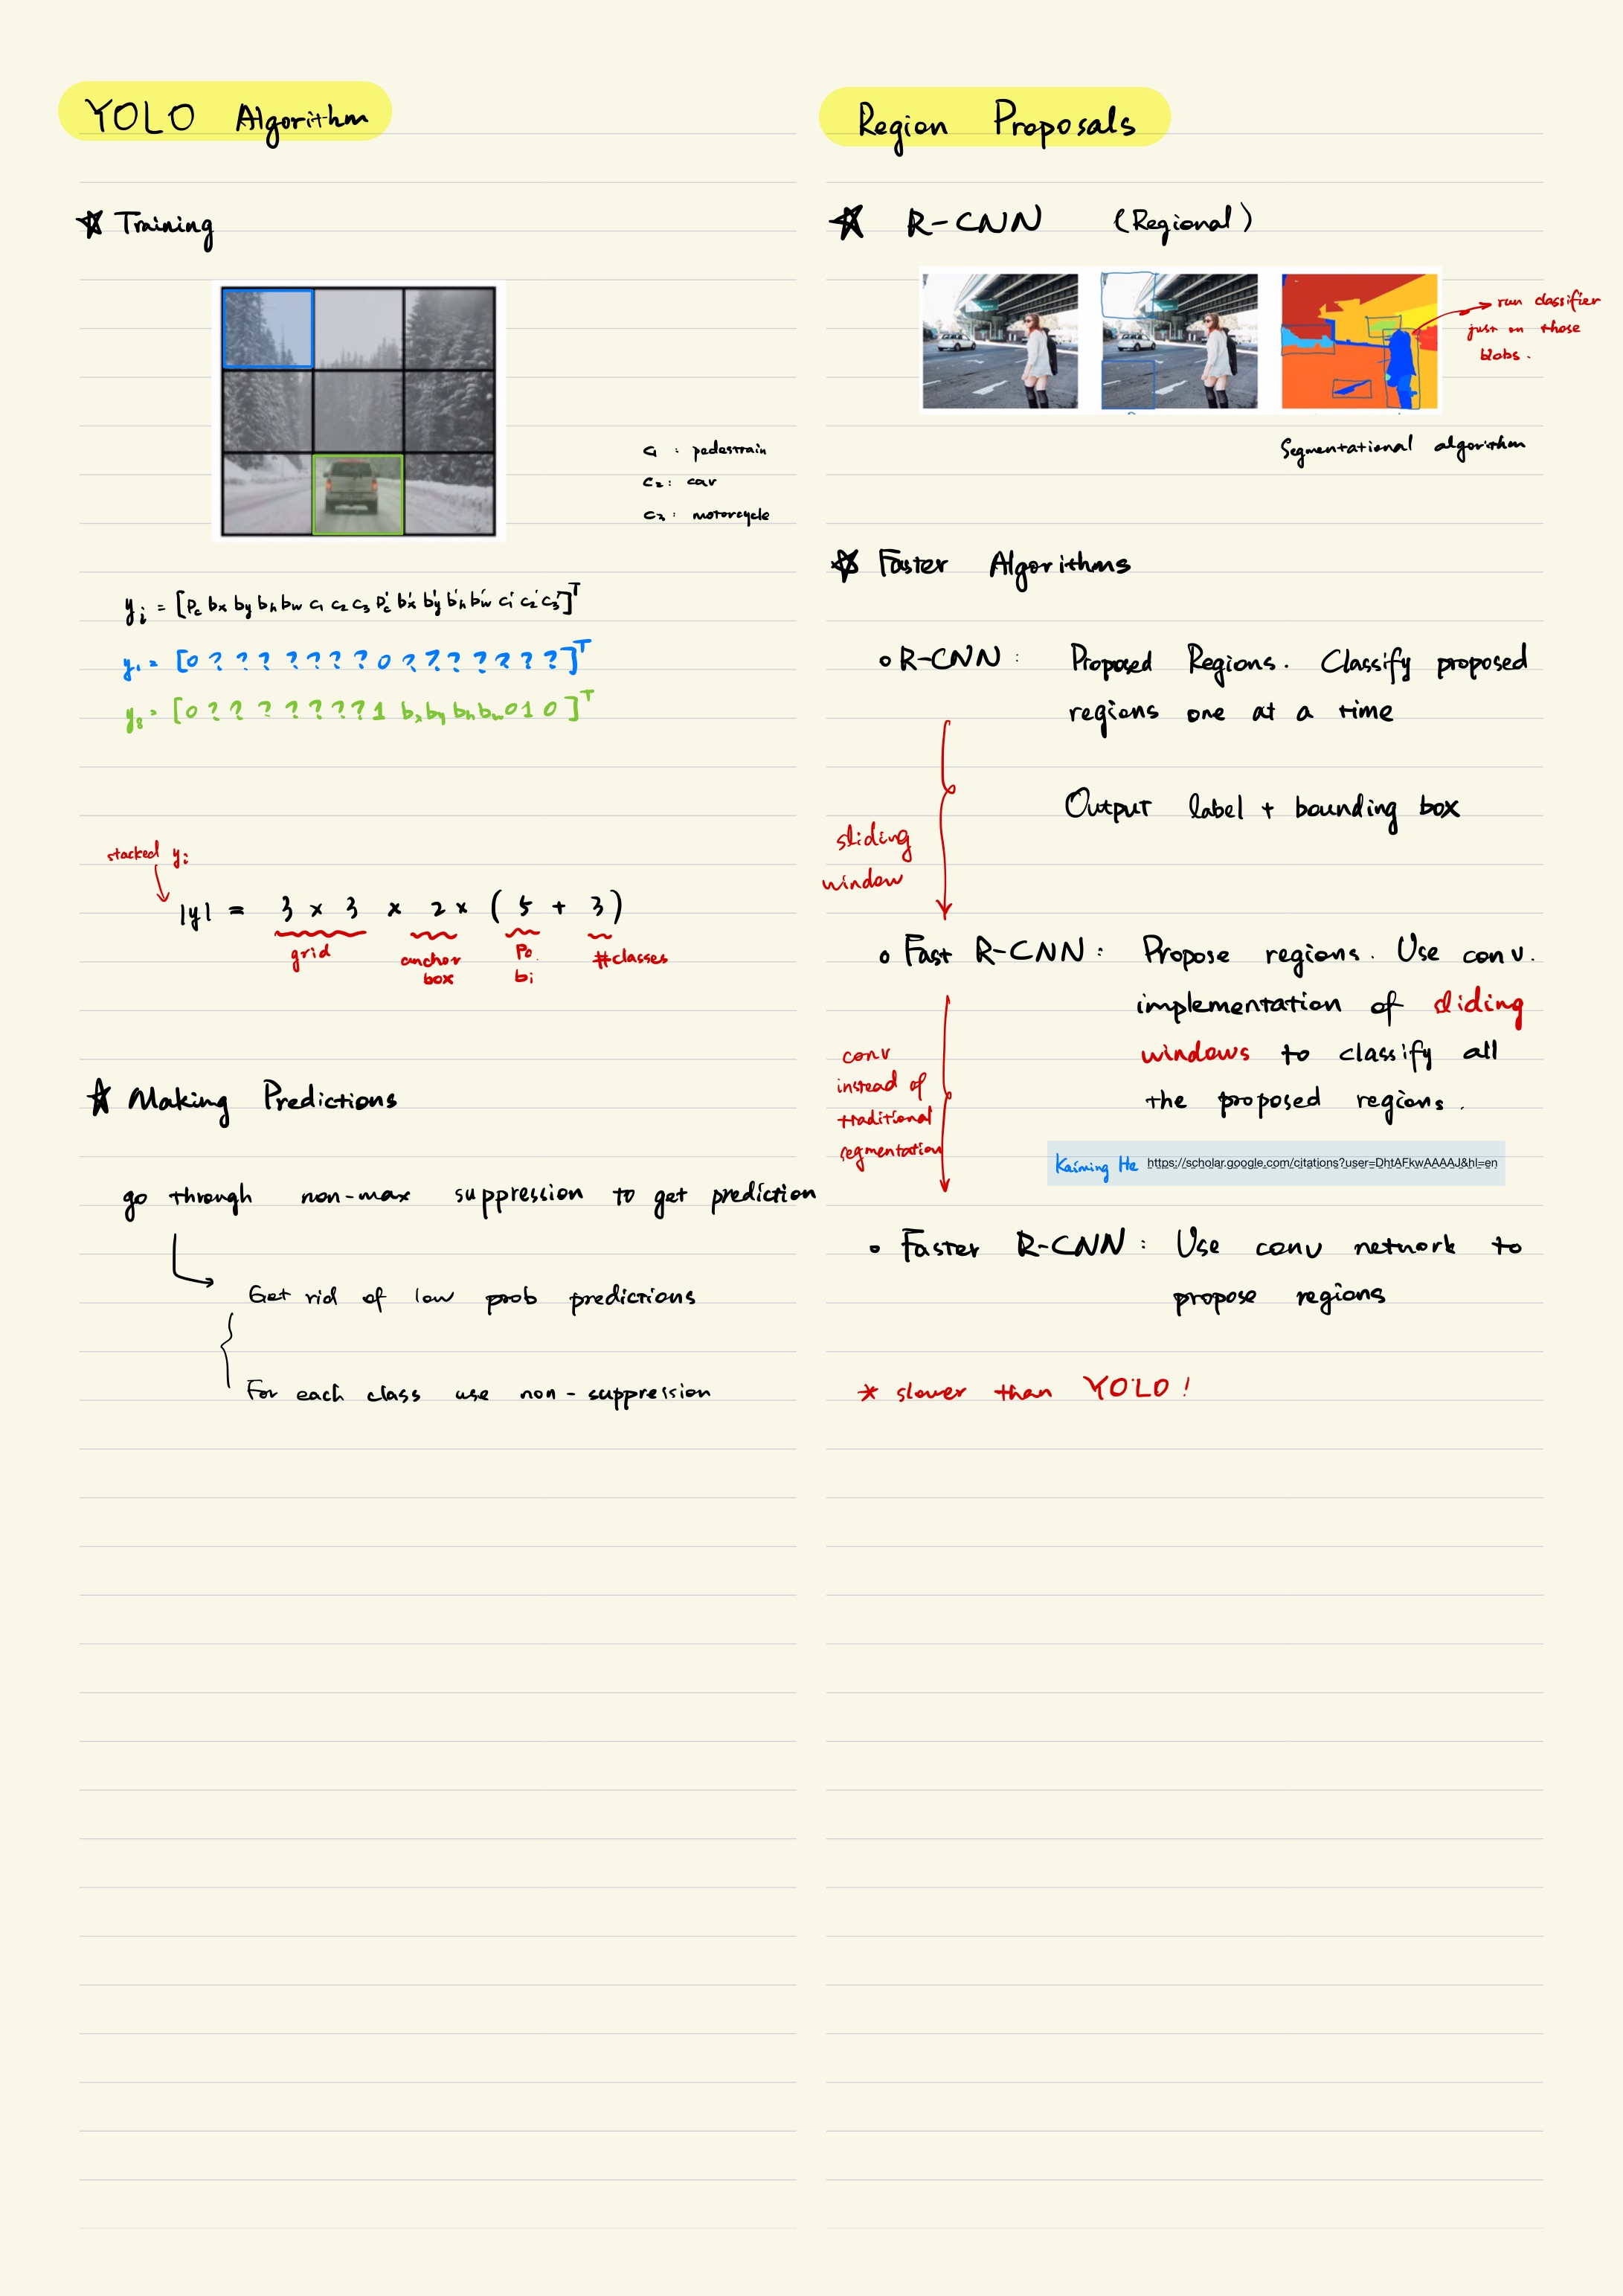 YOLO Algorithm
☆ Training
c₁ : pedestrain
c₂ : car
c₃ : motorcycle
yᵢ = [Pc bx by bh bw c₁ c₂ c₃ Pc' bx' by' bh' bw' c₁' c₂' c₃']ᵀ
y₁ = [0 ? ? ? ? ? ? ? 0 ? ? ? ? ? ? ?]ᵀ
y₈ = [0 ? ? ? ? ? ? ? 1 bx by bh bw 0 1 0]ᵀ
stacked yᵢ
|y| = 3 × 3 × 2 × ( 5 + 3 )
grid
anchor
box
Pc
bi
#classes
☆ Making Predictions
go through non-max suppression to get prediction
Get rid of low prob predictions
For each class use non-suppression
Region Proposals
☆ R-CNN (Regional)
run classifier
just on those
blobs.
Segmentational algorithm
☆ Faster Algorithms
∘ R-CNN : Proposed Regions. Classify proposed
regions one at a time
Output label + bounding box
sliding
window
∘ Fast R-CNN : Propose regions. Use conv.
implementation of sliding
windows to classify all
the proposed regions.
conv
instead of
traditional
segmentation
Kaiming He https://scholar.google.com/citations?user=DhtAFkwAAAAJ&hl=en
∘ Faster R-CNN : Use conv network to
propose regions
* slower than YOLO!